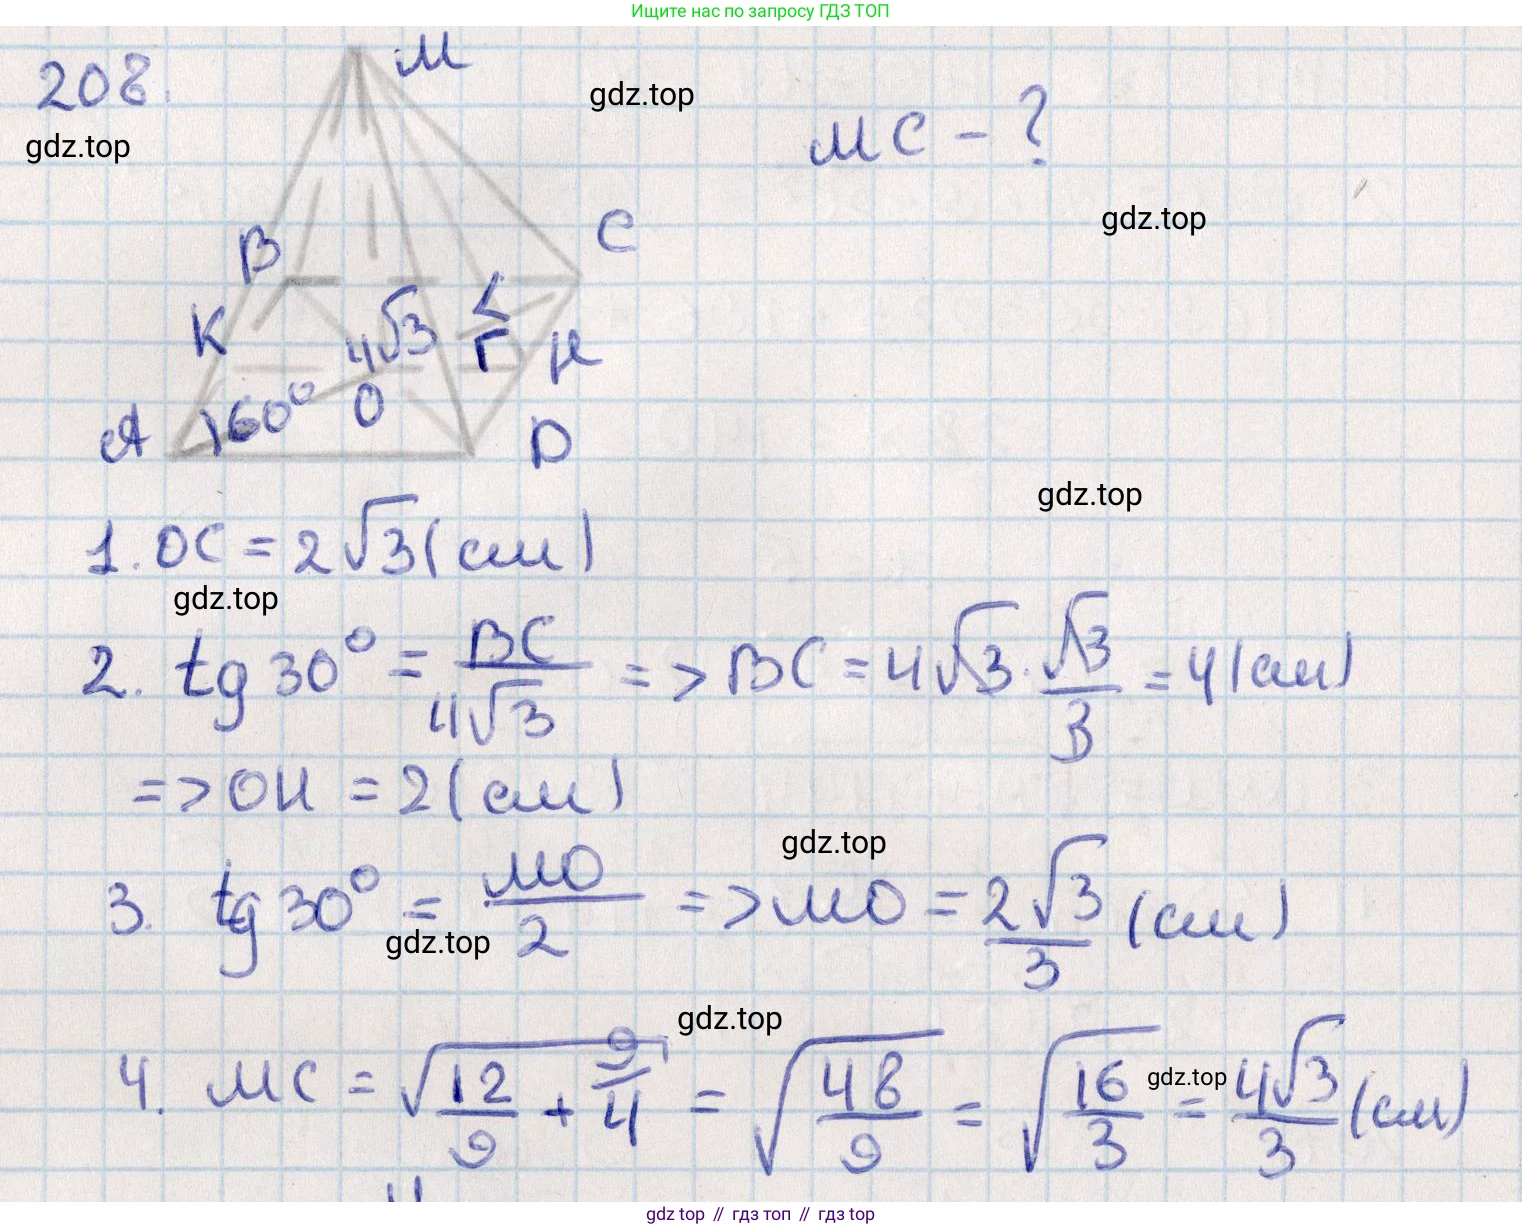 Ищите нас по запросу ГДЗ ТОП
208.
M
gdz.top
MC - ?
gdz.top
gdz.top
B
C
K
4√3
H
A
60°
O
D
gdz.top
1. OC = 2√3 (см)
gdz.top
2. tg 30° = BC/4√3 => BC = 4√3 · √3/3 = 4 (см)
=> OH = 2 (см)
gdz.top
3. tg 30° = MO/2 => MO = 2√3/3 (см)
gdz.top
gdz.top
4. MC = √(12/9 + 9/4) = √(48/9) = √(16/3) = 4√3/3 (см)
gdz.top
gdz top // гдз топ // гдз top